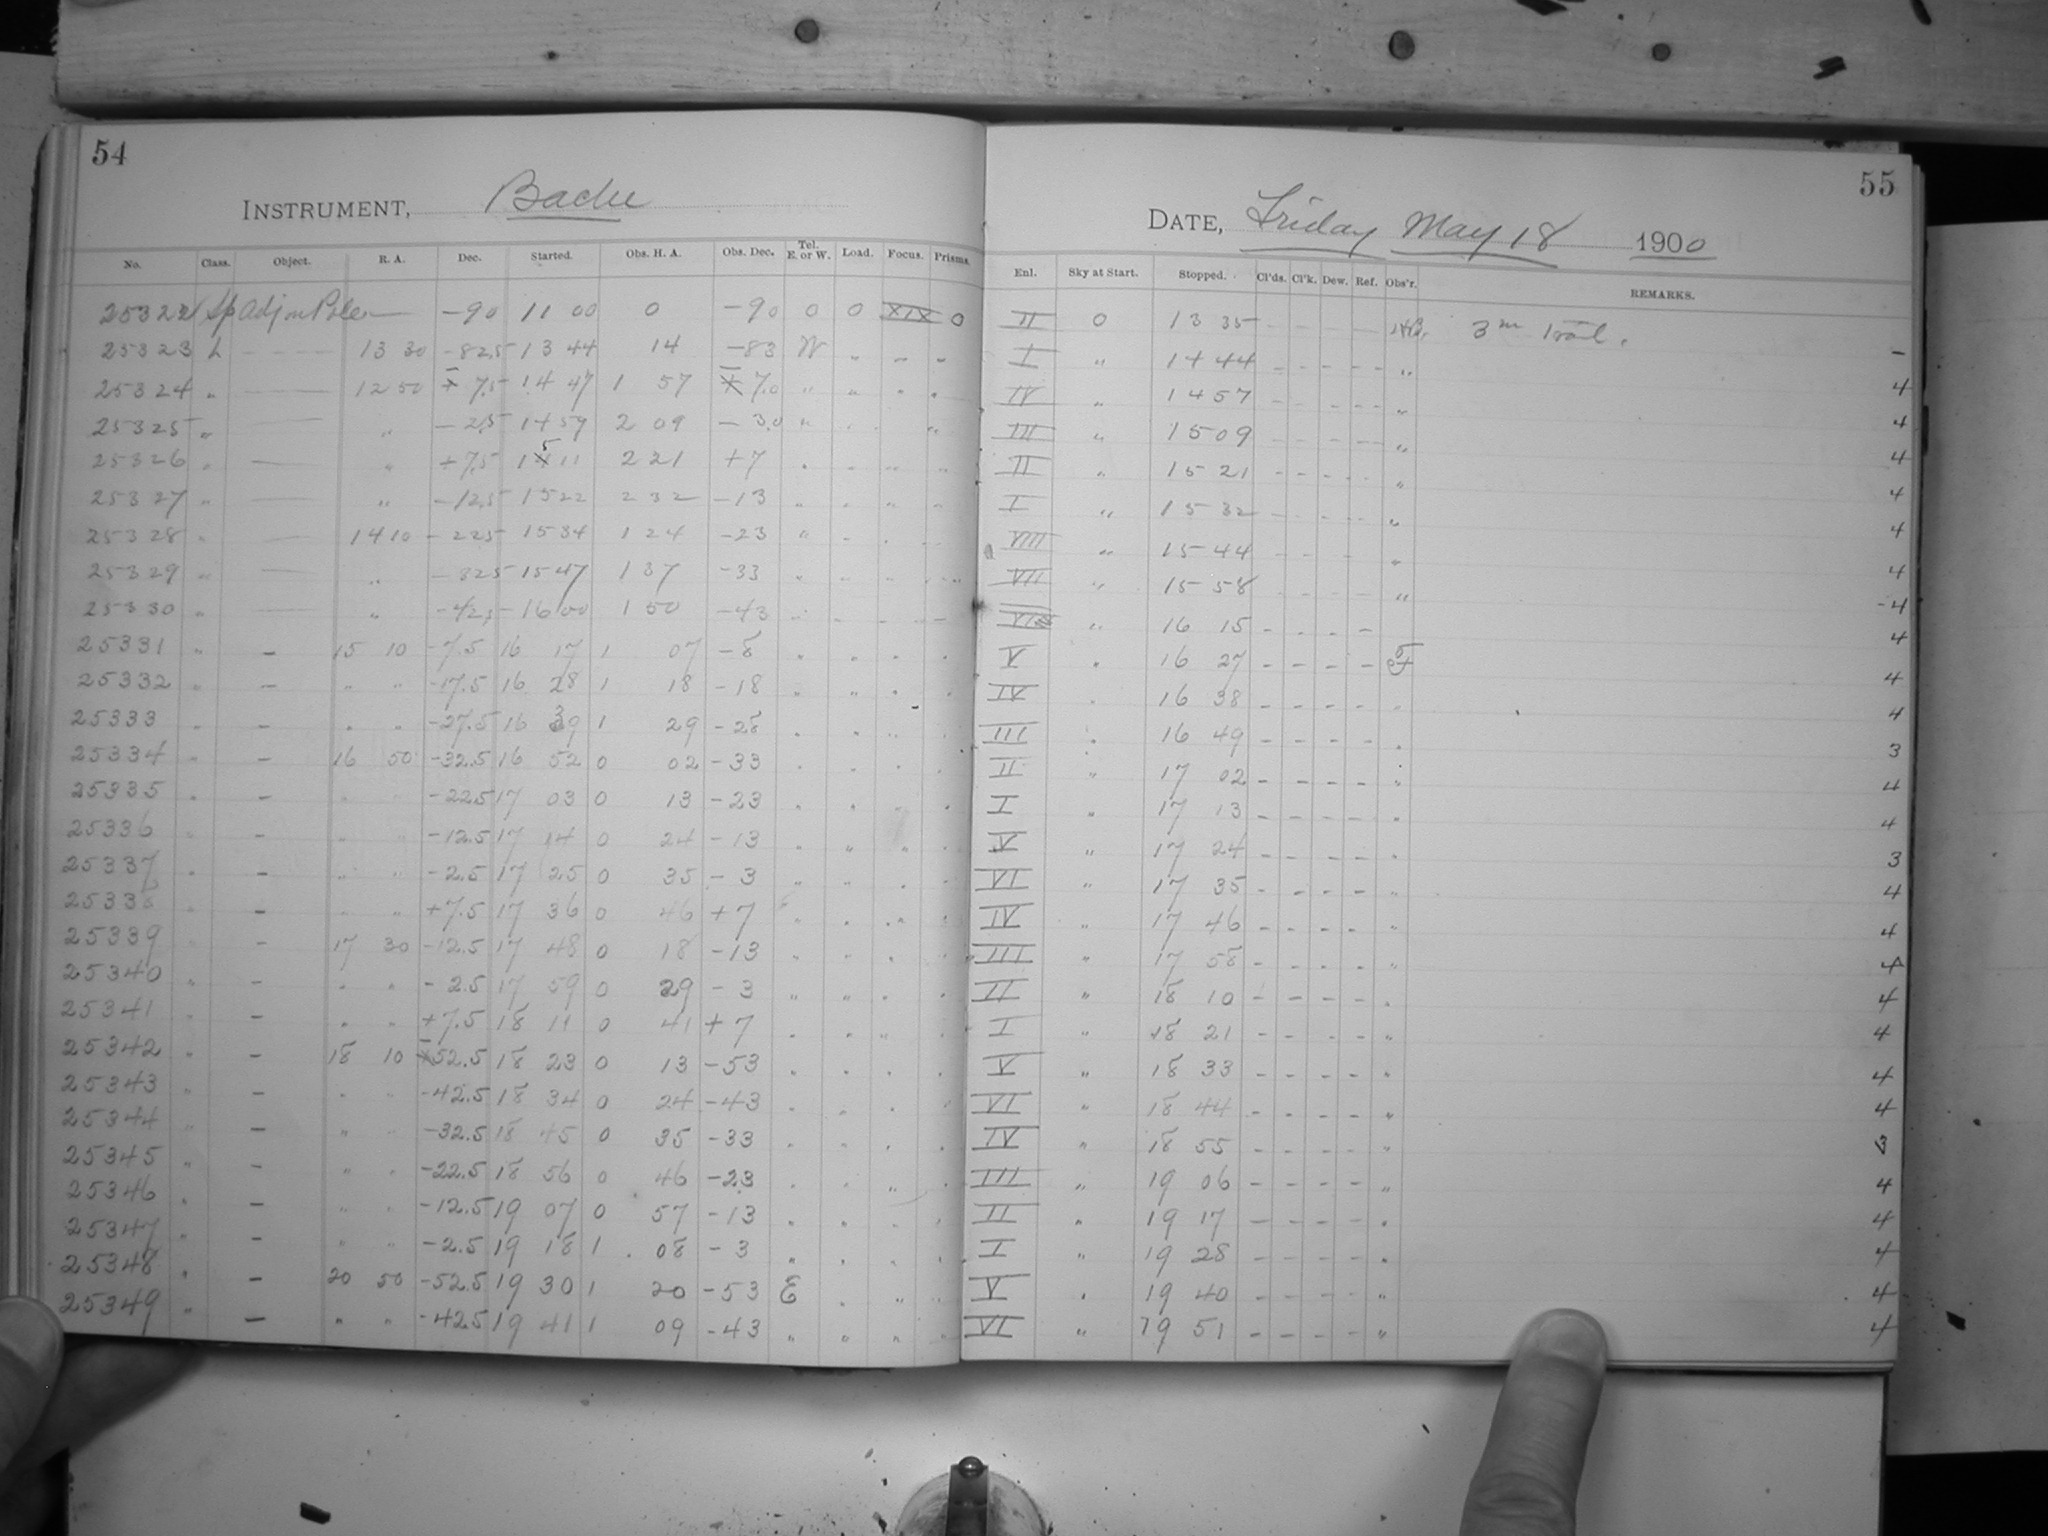 54
INSTRUMENT, Bache
No. Class. Object. R. A. Dec. Started. Obs. H. A. Obs. Dec. Tel. E. or W. Load. Focus. Prisms.
25322 Sp Adj on Pole — -90 11 00 0 -90 0 0 XIX 0
25323 L - - - - 13 30 -82.5 13 44 14 -83 W " " "
25324 " — 12 50 - 7.5 14 47 1 57 - 7.0 " " " "
25325 " — " -2.5 14 59 2 09 -3.0 " " "
25326 " — " +7.5 15 11 2 21 +7 " " " "
25327 " — " -12.5 15 22 2 32 -13 " " " "
25328 " — 14 10 -22.5 15 34 1 24 -23 " " " "
25329 " — " -32.5 15 47 1 37 -33 " " " "
25330 " — " -42.5 16 00 1 50 -43 " - - -
25331 " — 15 10 -7.5 16 17 1 07 -8 " " " "
25332 " — " " -17.5 16 28 1 18 -18 " " " "
25333 " — " " -27.5 16 39 1 29 -28 " " " "
25334 " — 16 50 -32.5 16 52 0 02 -33 " " " "
25335 " — " " -22.5 17 03 0 13 -23 " " " "
25336 " — " " -12.5 17 14 0 24 -13 " " " "
25337 " — " " -2.5 17 25 0 35 -3 " " " "
25338 " — " " +7.5 17 36 0 46 +7 " " " "
25339 " — 17 30 -12.5 17 48 0 18 -13 " " " "
25340 " — " " -2.5 17 59 0 29 -3 " " " "
25341 " — " " +7.5 18 11 0 41 +7 " " " "
25342 " — 18 10 -52.5 18 23 0 13 -53 " " " "
25343 " — " " -42.5 18 34 0 24 -43 " " " "
25344 " — " " -32.5 18 45 0 35 -33 " " " "
25345 " — " " -22.5 18 56 0 46 -23 " " " "
25346 " — " " -12.5 19 07 0 57 -13 " " " "
25347 " — " " -2.5 19 18 1 08 -3 " " " "
25348 " — 20 50 -52.5 19 30 1 20 -53 E " " "
25349 " — " " -42.5 19 41 1 09 -43 " " " "
55
DATE, Friday May 18 1900
Enl. Sky at Start. Stopped. Cl'ds. Cl'k. Dew. Ref. Obs'r. REMARKS.
II 0 13 35 - - - - 3m trail. -
I " 14 44 - - - - " 4
IV " 14 57 - - - - " 4
III " 15 09 - - - - " 4
II " 15 21 - - - - " 4
I " 15 32 - - - - " 4
VIII " 15 44 - - - " 4
VII " 15 58 " -4
" 16 15 - - - - 4
V " 16 27 - - - - 4
IV " 16 38 - - - - " 4
III " 16 49 - - - - " 3
II " 17 02 - - - - " 4
I " 17 13 - - - - " 4
V " 17 24 - - - - " 3
VI " 17 35 - - - - " 4
IV " 17 46 - - - - " 4
III " 17 58 - - - - " 4
II " 18 10 - - - - " 4
I " 18 21 - - - - " 4
V " 18 33 - - - - " 4
VI " 18 44 - - - - " 4
IV " 18 55 - - - - " 3
III " 19 06 - - - - " 4
II " 19 17 - - - - " 4
I " 19 28 - - - - " 4
V " 19 40 - - - - " 4
VI " 19 51 - - - - " 4